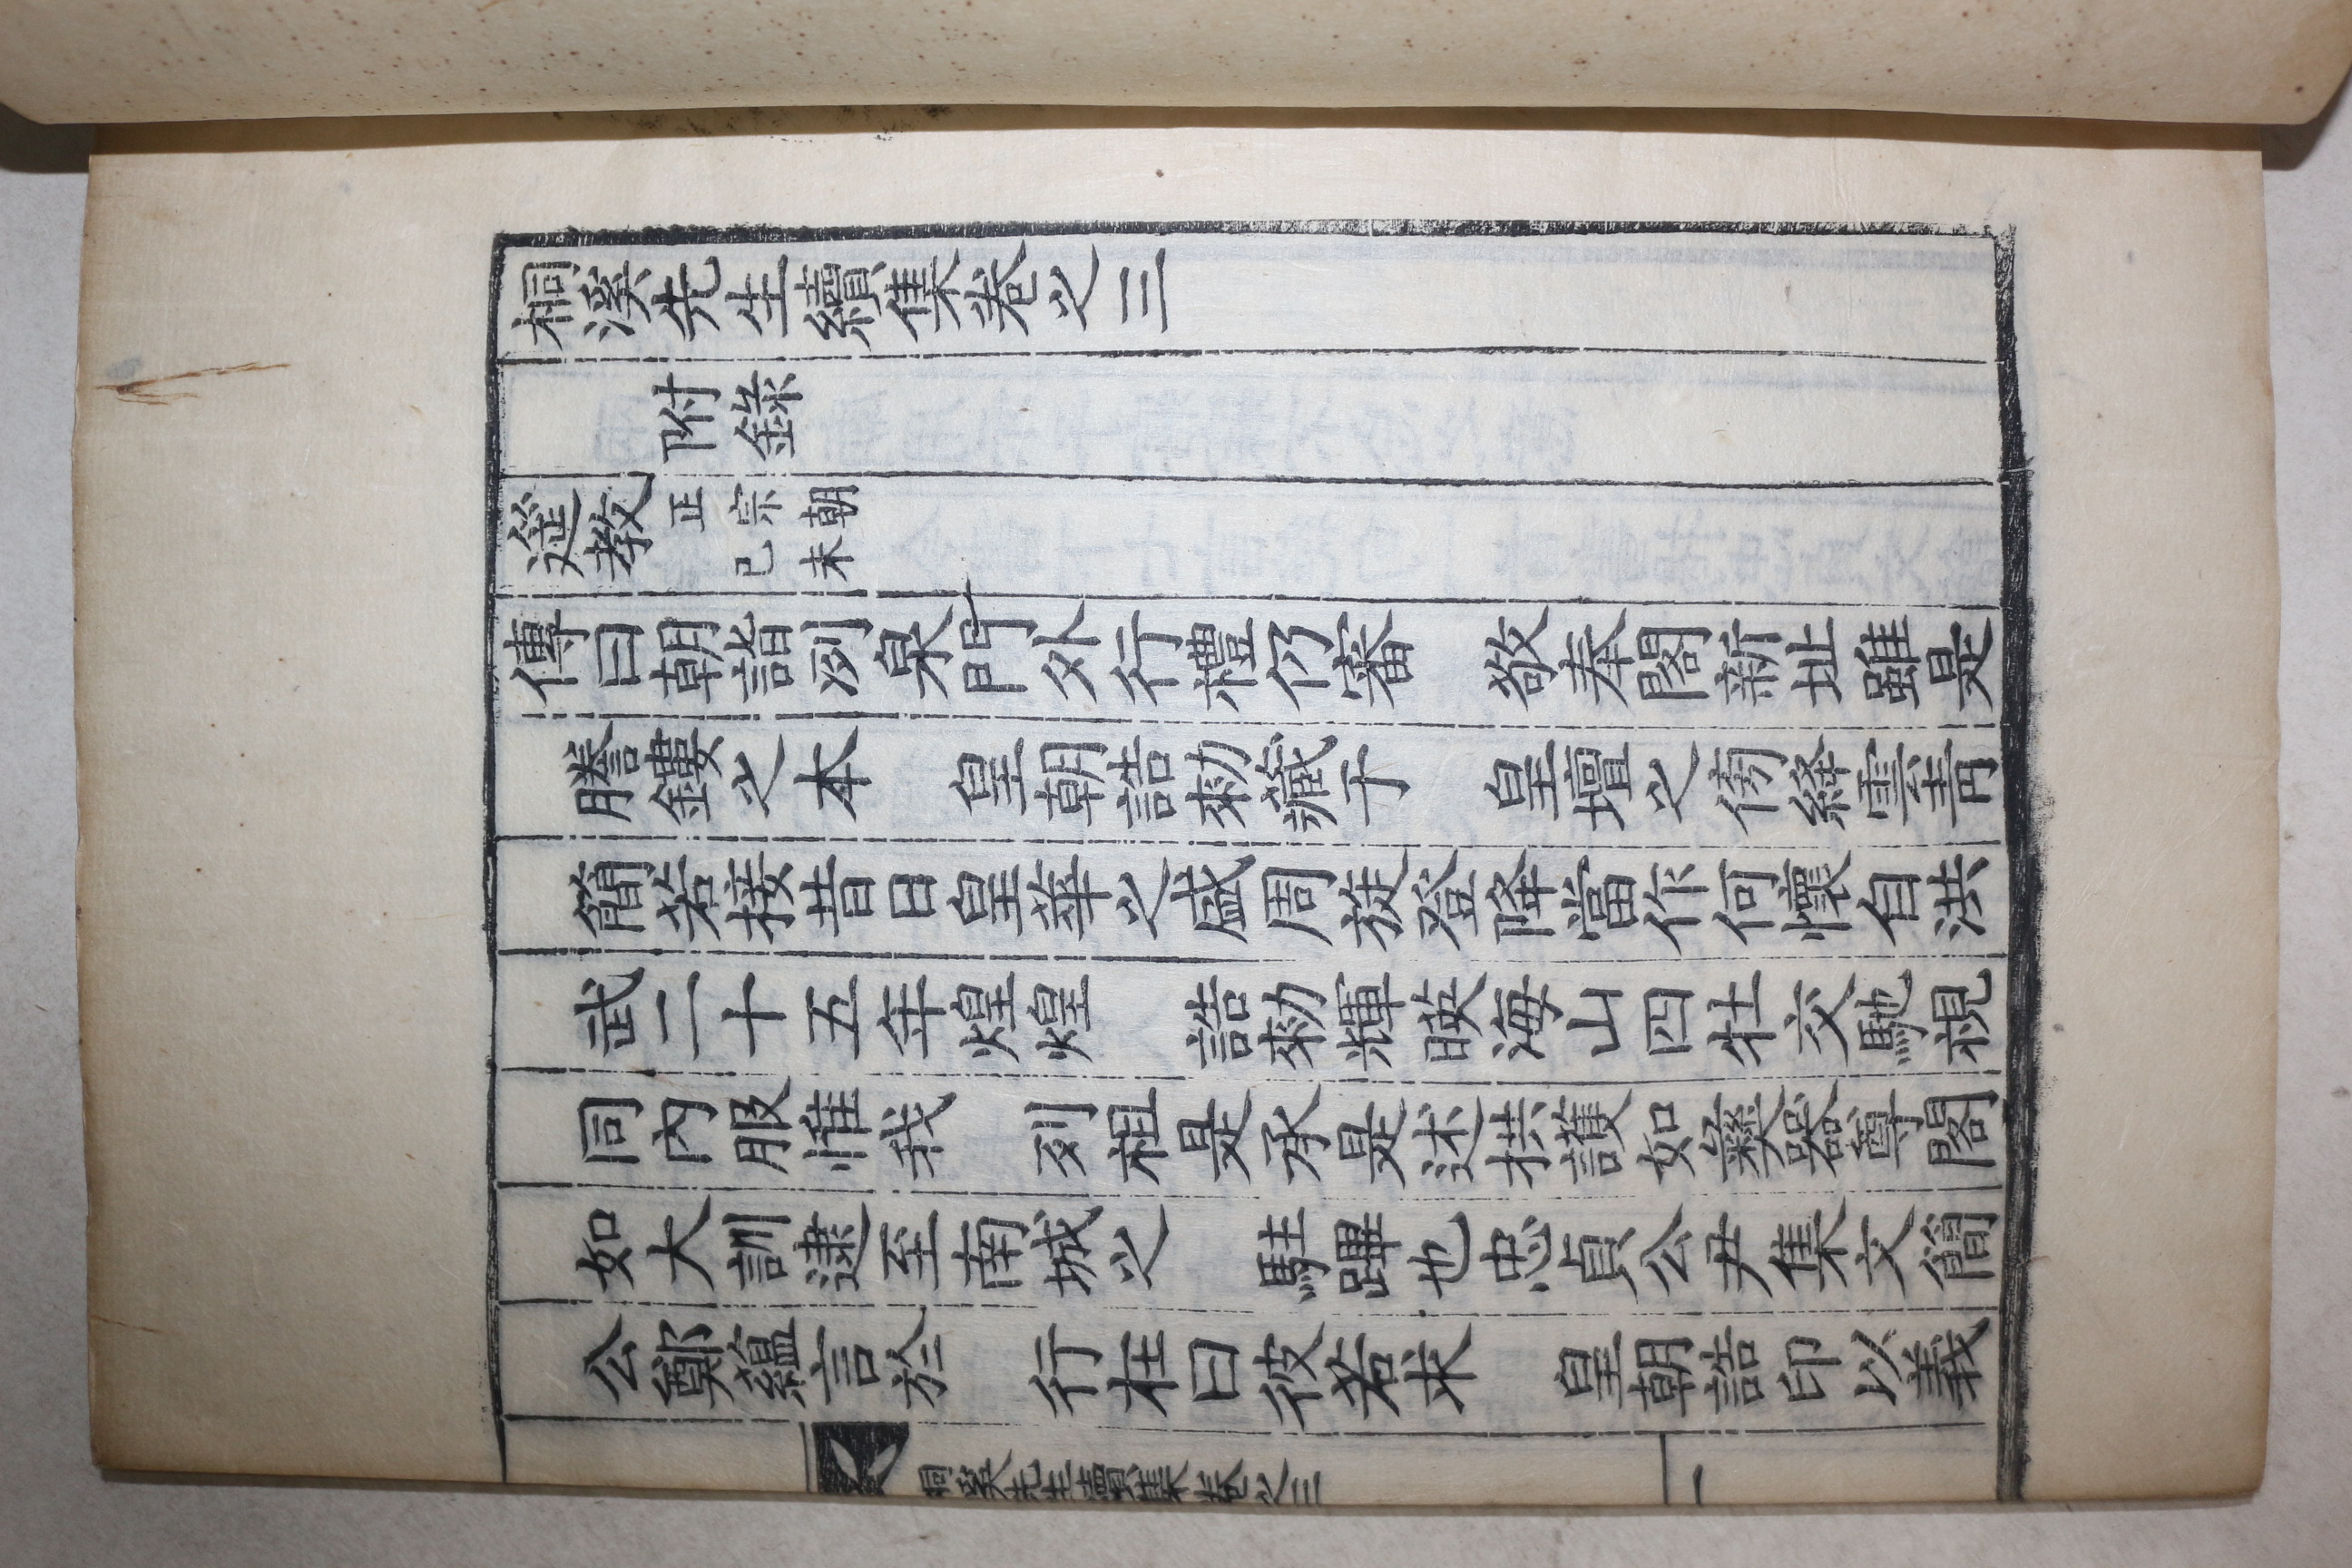 桐溪先生續集卷之三
附錄
筵敎 正宗朝己未
傳曰朝詣列泉門外行禮仍審 敬奉閣新址雖是
謄鏤之本 皇朝誥勅藏于 皇壇之傍絳雲靑
簡若接昔日皇華之盛周旋登降當作何懷自洪
武二十五年煌煌 誥勅輝暎海山四牡交馳視
同內服惟我 列祖是承是述拱護如彝器尊閣
如大訓逮至南城之 駐蹕也忠貞公尹集文簡
公鄭蘊言於 行在曰彼若求 皇朝誥印以義
桐溪先生續集卷之三 一